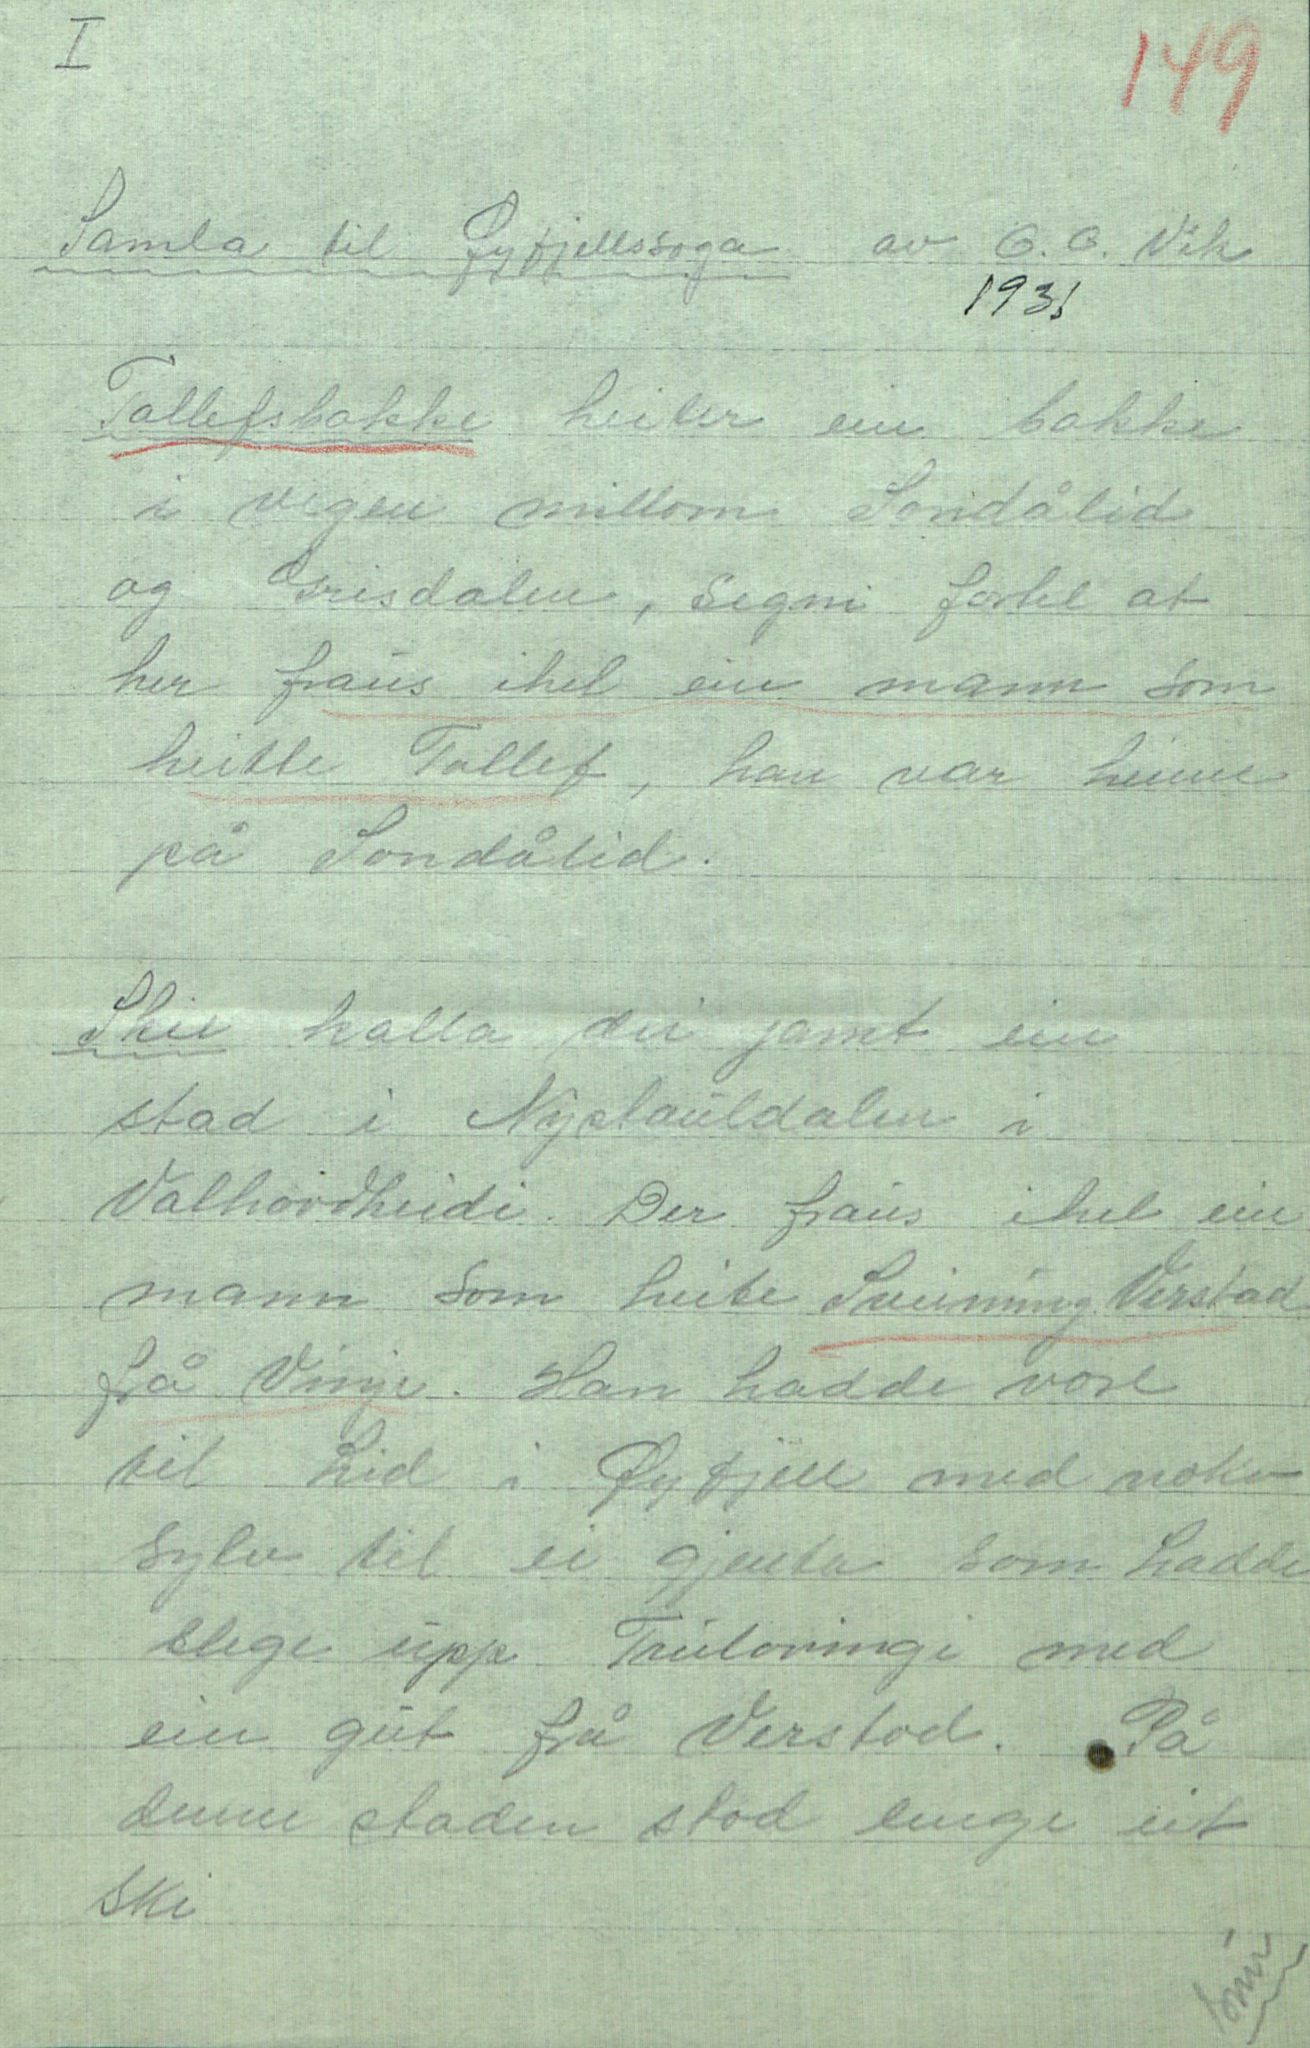 I
149
Samla til Øyfjellssoga av O.O. Vik
1931
Tallefsbakke heiter ein bakke
i vegen millom Sondålid
og Grisdalen, segni fortel at
her fraus ihel ein mann som
heitte Tallef, han var heime
på Sondålid.
Skie kalla dei jamt ein
stad i Nystauldalen i
Valhovdheidi. Der fraus ihel ein
mann som heite Sveinung Verstad
frå Vinje. Han hadde vore
til Lid i Øyfjell med noko
sylv til ei gjenta som hadde
slege upp Trulovingi med
ein gut frå Verstod. På
denne staden stod lenge eit
ski